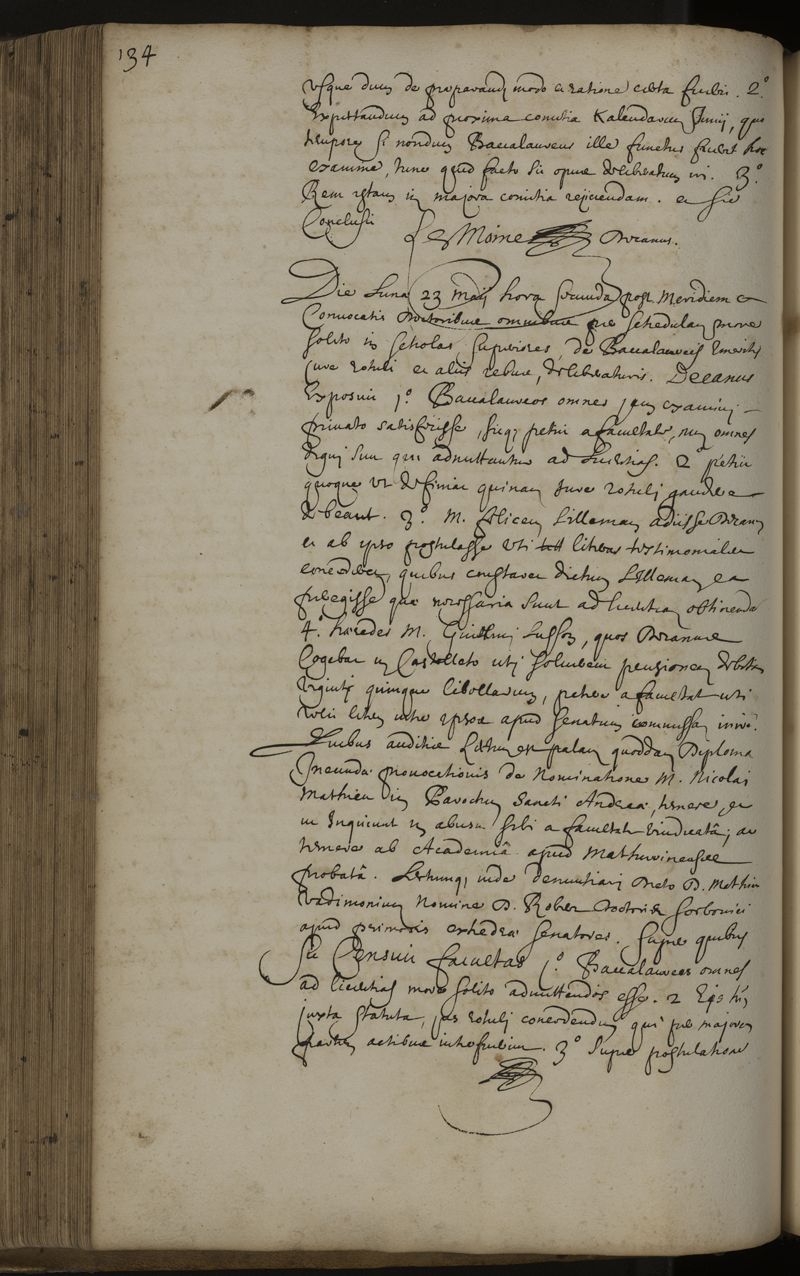 134
usque dum de præparandi modo et ratione certa fuerit. 2.°
Expectandum ad proxima comitia Kalendarum Junij, quo
tempore si nondum Baccalaureus ille functus fuerit hoc
examine, tunc quid facto sit opus deliberatum iri. 3.°
Rem istam in majora comitia rejiciendam. et sic
Conclusit
Le Moine Decanus.
Die Lunæ 23 Maij hora secunda post Meridiem
Convocatis Doctoribus omnibus per schedulam more
solito in Scholas superiores, de Baccalaureis Emeritis
jure rotuli et aliis rebus, deliberaturis. Decanus
Exposuit 1.° Baccalaureos omnes examini
privato satisfecisse, sicq; petiit a facultate, num omnes
digni sint qui admittantur ad Licentias. 2.° petiit
quoque ut definiat quinam jure rotuli gaudere
debeant. 3.° M. Lilleman adiisse Decanum
et ab ipso postulasse uti litteras testimoniales
concederet, quibus constaret dictum Lilleman ea
peregisse quæ necessaria sunt ad licentiam obtinendam
4.° hæredes M. Guillelmi Lusson, quos Decanus
Cogebat in Castelleto uti solverent pensionem debitam
viginti quinque libellarum, petere a facultate uti
velit litem inter ipsos apud senatum commissam
Quibus auditis Lectum est palam quoddam Diploma
provocationis de Nominatione M. Nicolai
Mathieu in Parochum Sancti Andreæ, temere, et
ut inquiunt in abusu sibi a facultate vindicatâ, ac
temere ab Academiâ apud Mathurinenses
probatâ. Lectumq; inde denuntiari Dicto D. Mathieu
vadimonium Nomine D. Rober Doctoris Sorbonici
apud primoris exhedræ Senatores. super quibus
sic Censuit facultas 1.° Baccalaureos omnes
ad licentias more solito admittendos esse. 2
juxta statuta, jus rotuli concedendum qui per majorem
partem actibus interfuerint. 3.° Super postulatione